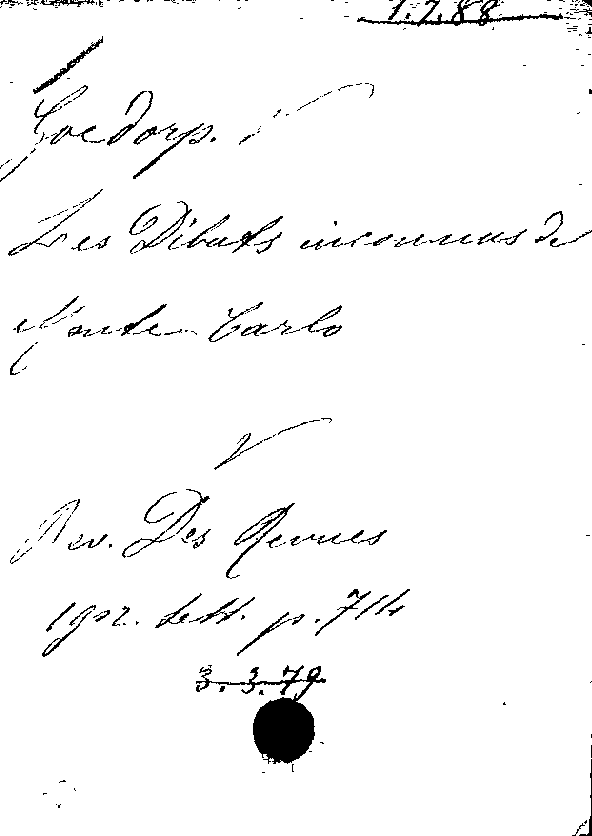 1.7.88
Goedorp.
Les Débuts inconnus de
Monte-Carlo
Rev. Des Revues
1902. Sett. p. 714
3.3.79